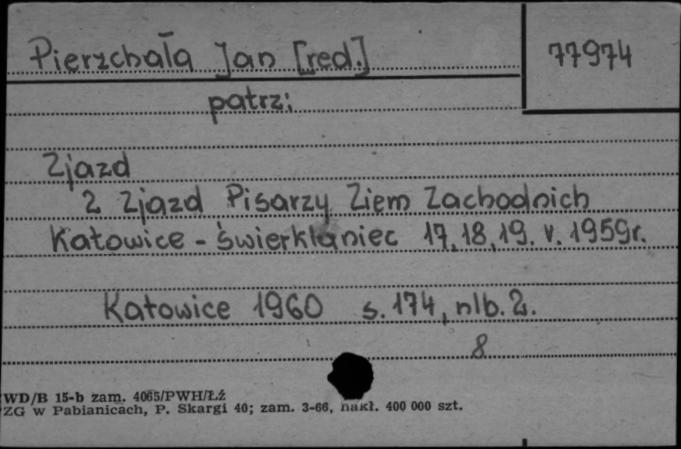 Pierzchała Jan [red.]
77974
patrz:
Zjazd
2 Zjazd Pisarzy Ziem Zachodnich
Katowice - Świerklaniec 17, 18, 19. V. 1959r.
Katowice 1960 s. 174, nlb. 2.
8
WD/B 15-b zam. 4065/PWH/ŁŹ
ZG w Pabianicach, P. Skargi 40; zam. 3-66, nakł. 400 000 szt.